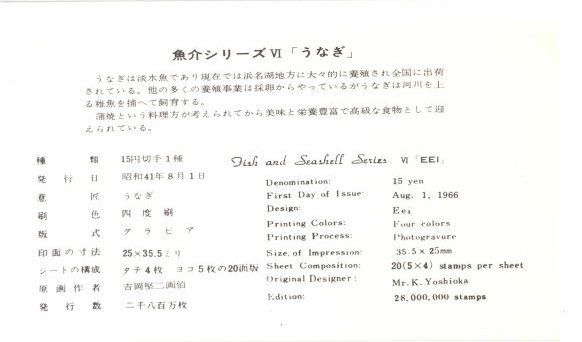 魚介シリーズⅥ「うなぎ」
うなぎは淡水魚であり現在では浜名湖地方に大々的に養殖され全国に出荷
されている。他の多くの養殖事業は採卵からやっているがうなぎは河川を上
る稚魚を捕へて飼育する。
蒲焼という料理方が考えられてから美味と栄養豊富で高級な食物として迎
えられている。
種類 15円切手1種
発行日 昭和41年8月1日
意匠 うなぎ
刷色 四度刷
版式 グラビア
印面の寸法 25×35.5ミリ
シートの構成 タテ4枚 ヨコ5枚の20面版
原画作者 吉岡堅二画伯
発行数 二千八百万枚
Fish and Seashell Series Ⅵ「EEI」
Denomination: 15 yen
First Day of Issue: Aug. 1, 1966
Design: Eel
Printing Colors: Four colors
Printing Process: Photogravure
Size of Impression: 35.5 × 25mm
Sheet Composition: 20(5×4) stamps per sheet
Original Designer: Mr. K. Yoshioka
Edition: 28,000,000 stamps